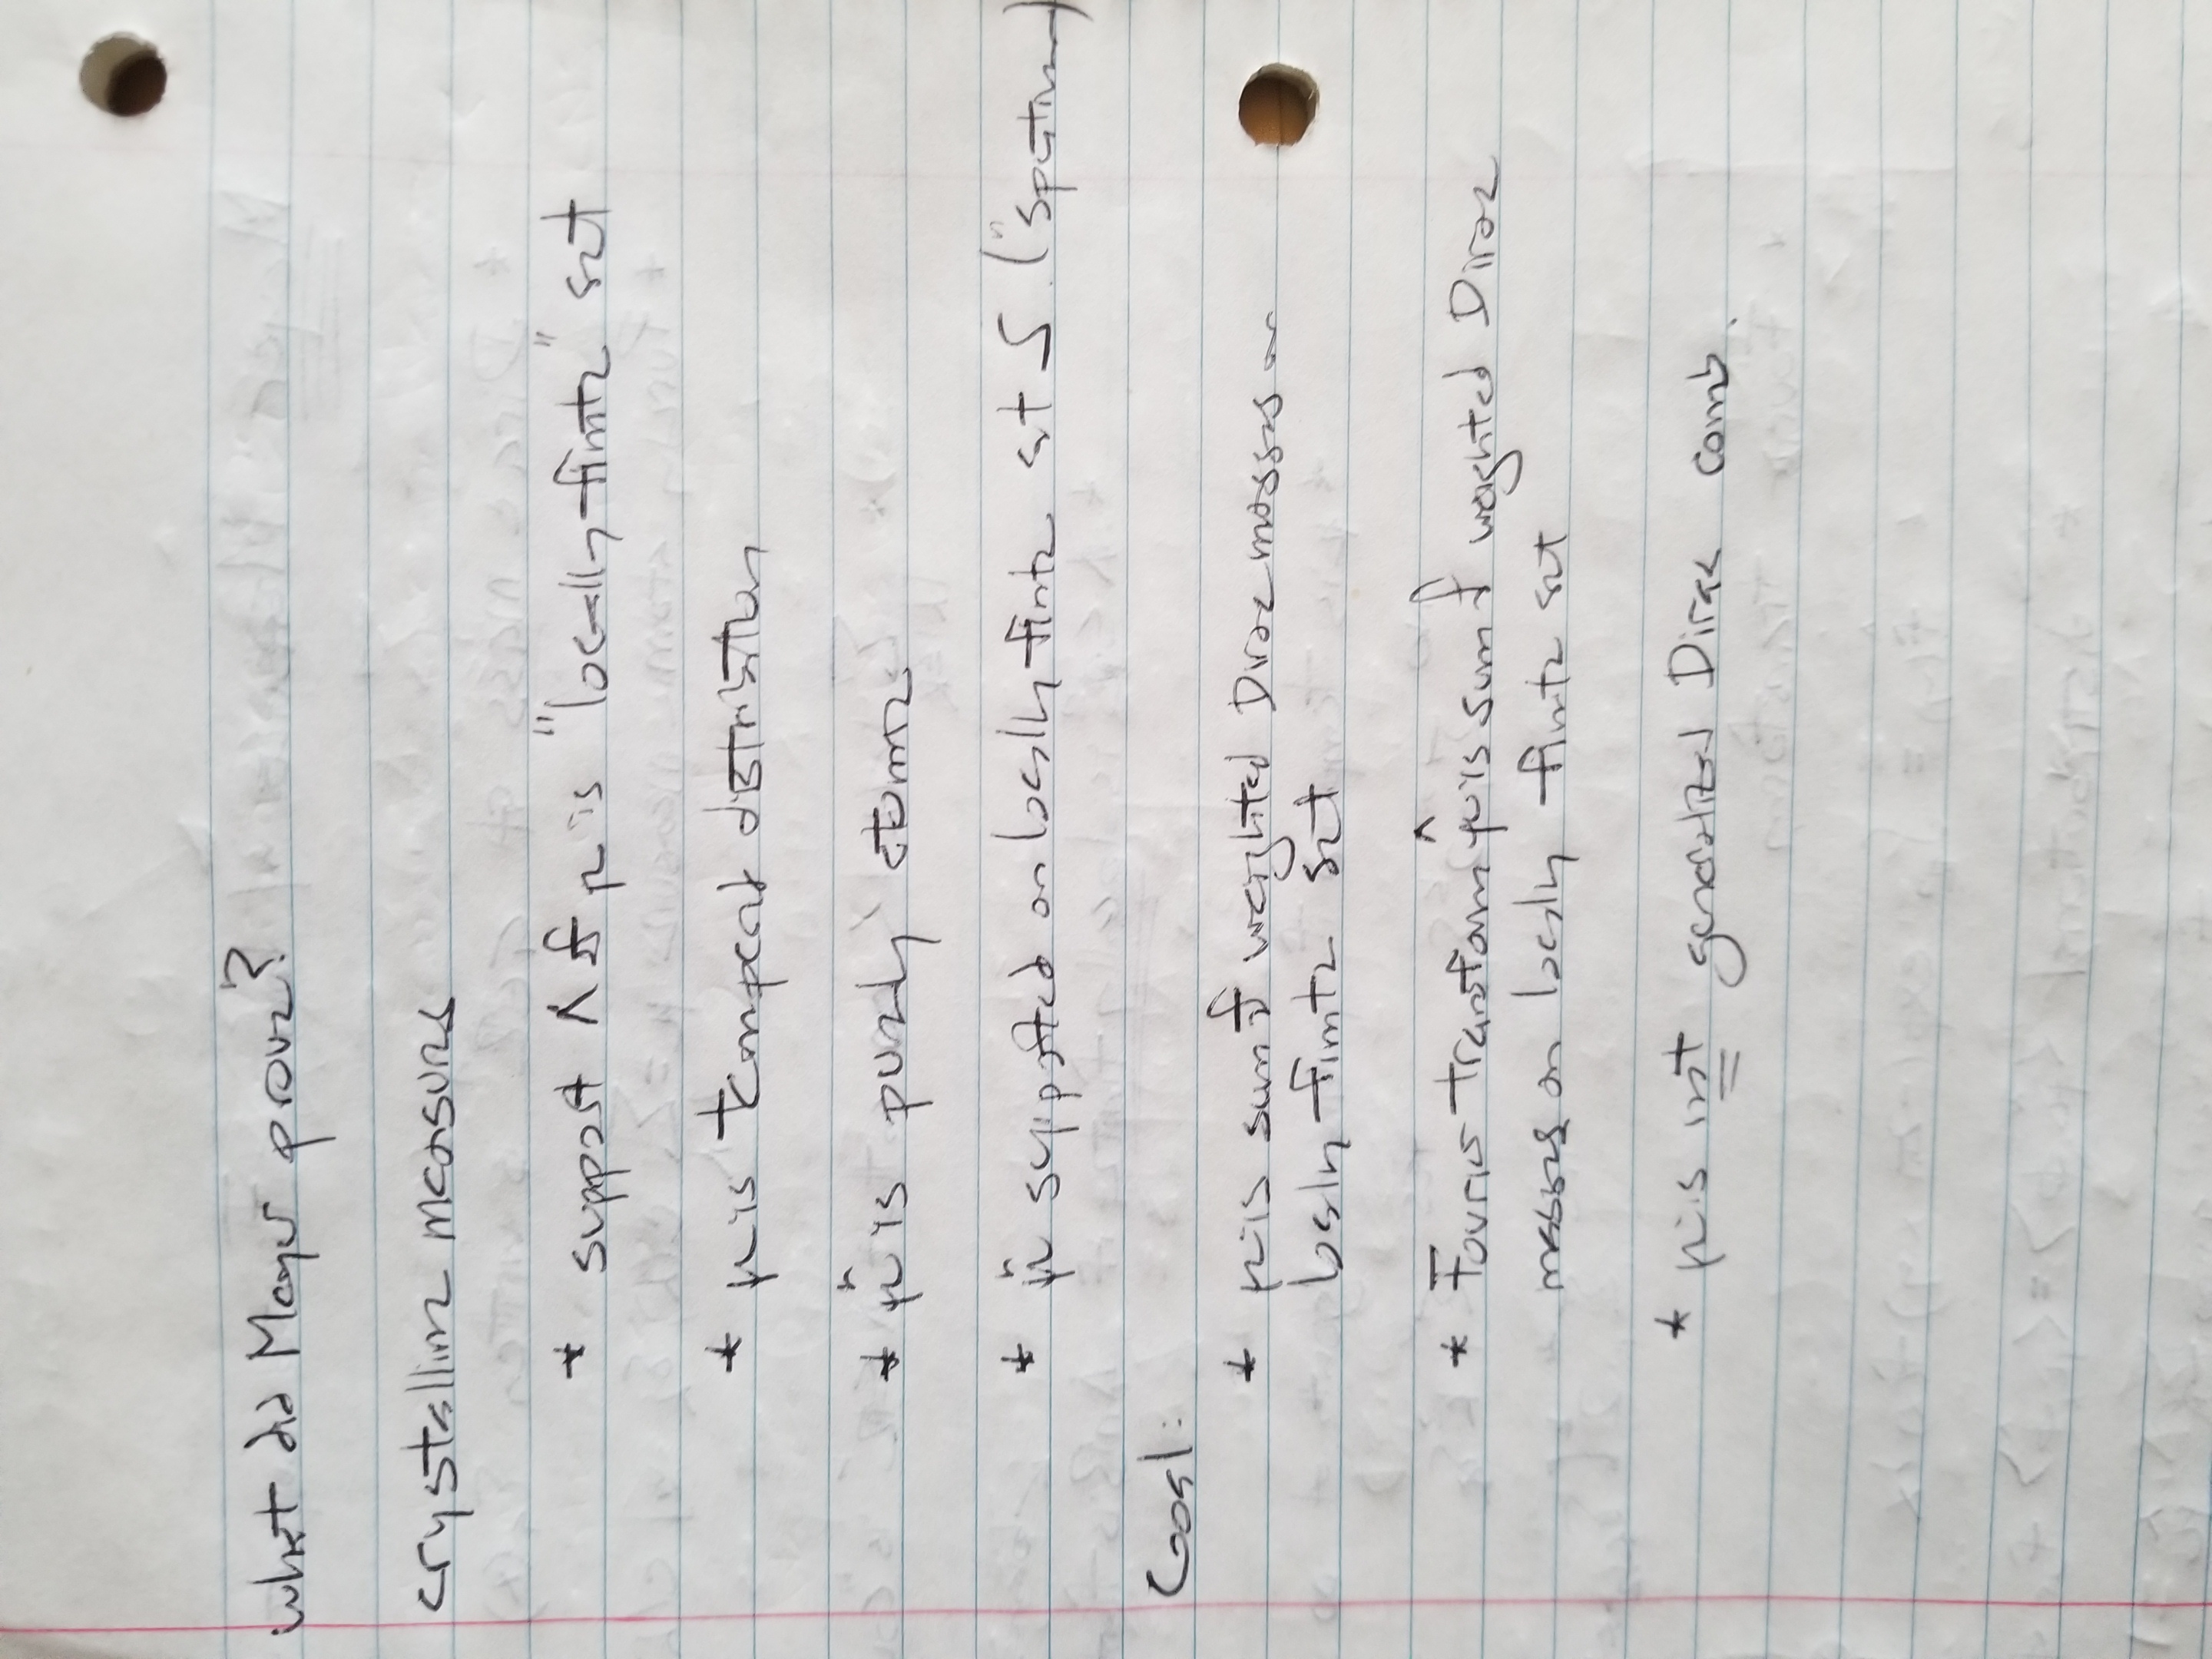 What did Meyer prove?
crystalline measures
* support Λ of μ is "locally finite" set
* μ is tempered distribution
* μ̂ is purely atomic
* μ̂ supported on locally finite set S. ("spectrum")
Goal:
* μ is sum of weighted Dirac masses on
locally finite set
* Fourier transform μ̂ is sum of weighted Dirac
masses on locally finite set
* μ is not generalized Dirac comb.